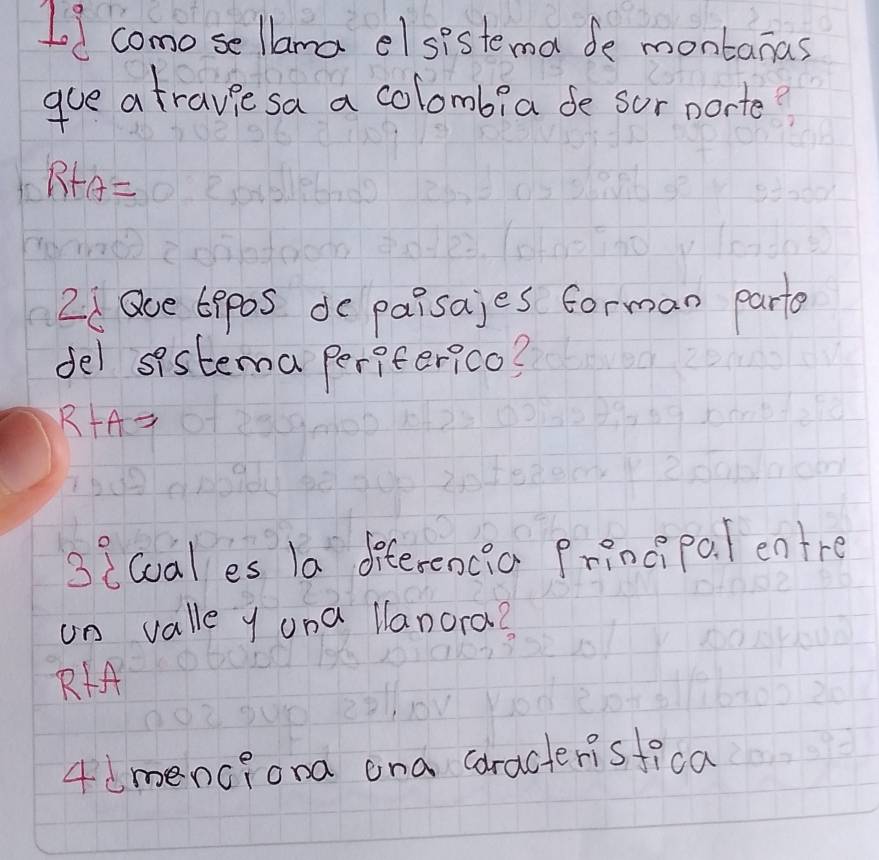 1¿ como se llama el sistema de montañas
que atraviesa a colombia de sur norte?
RtA=
2¿ Que tipos de paisajes forman parte
del sistema Periferico?
RtA=
3¿ Cual es la diferencia Principal entre
un valle y una llanora?
RtA
4¿ menciona una caracteristica